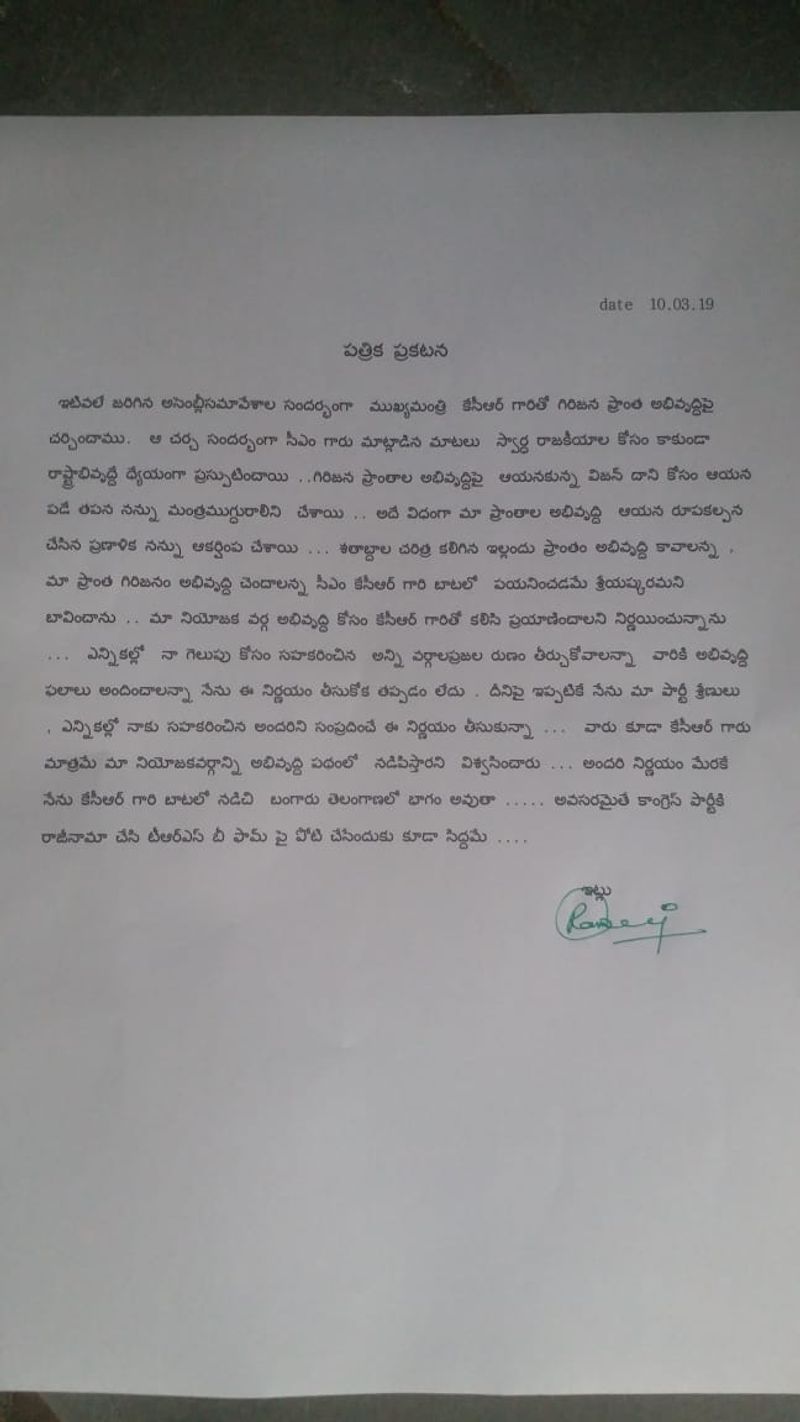 date 10.03.19
పత్రిక ప్రకటన
ఇటివలే జరిగిన అసెంబ్లీసమావేశాల సందర్భంగా ముఖ్యమంత్రి కేసీఆర్ గారితో గిరిజన ప్రాంత అభివృద్ధిపై
చర్చిందాము. ఆ చర్చ సందర్భంగా సీఎం గారు మాట్లాడిన మాటలు స్వార్ధ రాజకీయాల కోసం కాకుండా
రాష్ట్రాభివృద్దే ధ్యేయంగా ప్రస్పుటిందాయి ..గిరిజన ప్రాంతాల అభివృద్దిపై ఆయనకున్న విజన్ దాని కోసం ఆయన
పడే తపన నన్ను మంత్రముగ్దురాలిని చేశాయి .. అదే విదంగా మా ప్రాంతాల అభివృద్ది ఆయన రూపకల్పన
చేసిన ప్రణాళిక నన్ను ఆకర్షింప చేశాయి ... శతాబ్దాల చరిత్ర కలిగిన ఇల్లందు ప్రాంతం అభివృద్ది కావాలన్న ,
మా ప్రాంత గిరిజనం అభివృద్ది చెందాలన్న సీఎం కేసీఆర్ గారి బాటలో పయనించడమే శ్రేయష్కరమని
బావిందాను .. మా నియోజక వర్గ అభివృద్ది కోసం కేసీఆర్ గారితో కలిసి ప్రయాణిందాలని నిర్ణయించున్నాను
... ఎన్నికల్లో నా గెలుపు కోసం సహకరించిన అన్ని వర్గాలప్రజల రుణం తీర్చుకోవాలన్నా వారికి అభివృద్ది
ఫలాలు అందిందాలన్నా నేను ఈ నిర్ణయం తీసుకోక తప్పడం లేదు . దీనిపై ఇప్పటికే నేను మా పార్టీ శ్రేణులు
, ఎన్నికల్లో నాకు సహకరించిన అందరిని సంప్రదించే ఈ నిర్ణయం తీసుకున్నా ... వారు కూడా కేసీఆర్ గారు
మాత్రమే మా నియోజకవర్గాన్ని అభివృద్ది పథంలో నడిపిస్తారని విశ్వసిందారు ... అందరి నిర్ణయం మేరకే
నేను కేసీఆర్ గారి బాటలో నడిచి బంగారు తెలంగాణలో బాగం అవుతా ..... అవసరమైతే కాంగ్రెస్ పార్టీకి
రాజీనామా చేసి టీఆర్ఎస్ బీ ఫామ్ పై పోటి చేసేందుకు కూడా సిద్దమే ....
ఇట్లు